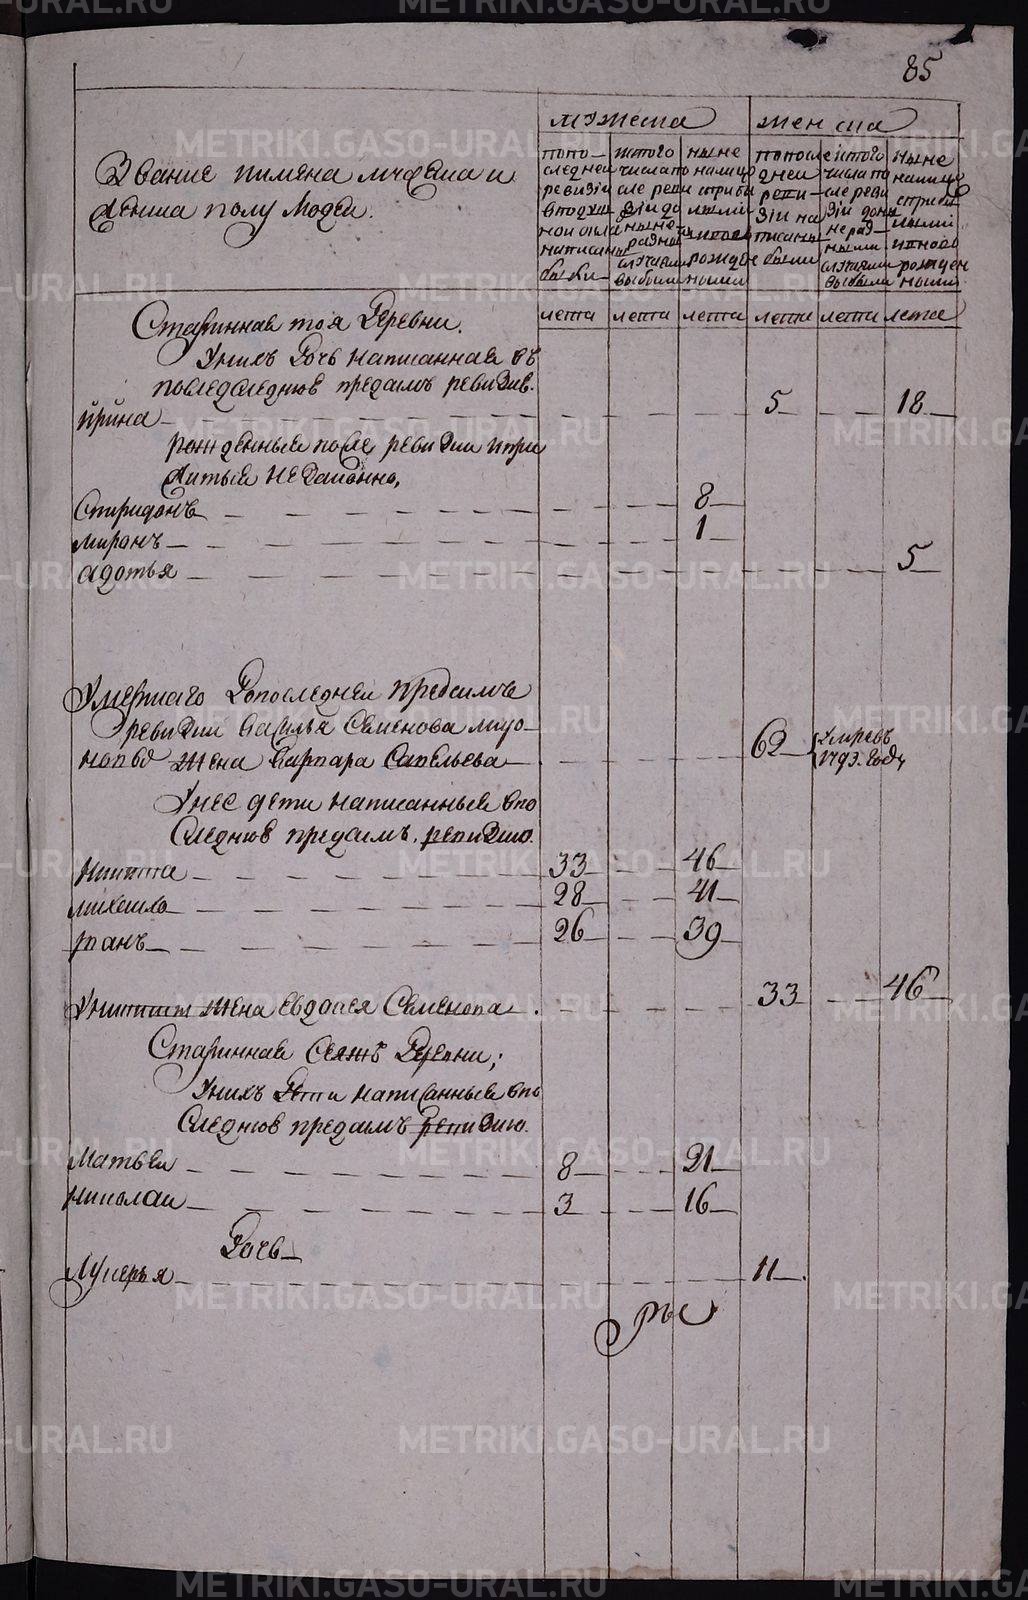 85
мужеска
женска
Звание и имена мужеска и
женска полу людей.
попо-
следней
ревизіи
в подуш
ной окла
написаны
были
из того
числа по
сле реви
зіи до
ныне
разны
случаями
выбыли
ныне
на лицо
с прибы
лыми
и вновь
рожден
ными
по после
дней
реви-
зіи на
писаны
были
из того
числа по
сле реви
зіи до ны
не раз-
ными
случаями
выбыли
ныне
на лице
с прибы
лыми
и вновь
рожден
ными
лета лета лета лета лета лета
Старинная тоя деревни.
У нихъ дочь написанная въ
последнюю предъ симъ ревизию.
Ирина 5 18
рожденныя после ревизии и при
житыя не давно,
Спиридонъ 8
Миронъ 1
Авдотья 5
Умершаго до последней предсимъ
ревизии Василья Семенова
жена Варвара Савельева 62 Умре въ
1793. году
У нее дети написанныя в по
следнюю предъ симъ ревизию.
Никита 33 46
Михайло 28 41
Иванъ 26 39
У Никиты жена Евдокея Семенова 33 46
Старинная сеяжъ деревни;
У нихъ дети написанныя в по
следнюю предъ симъ ревизию.
Матвей 8 21
Николай 3 16
Дочь
Лукерья 11